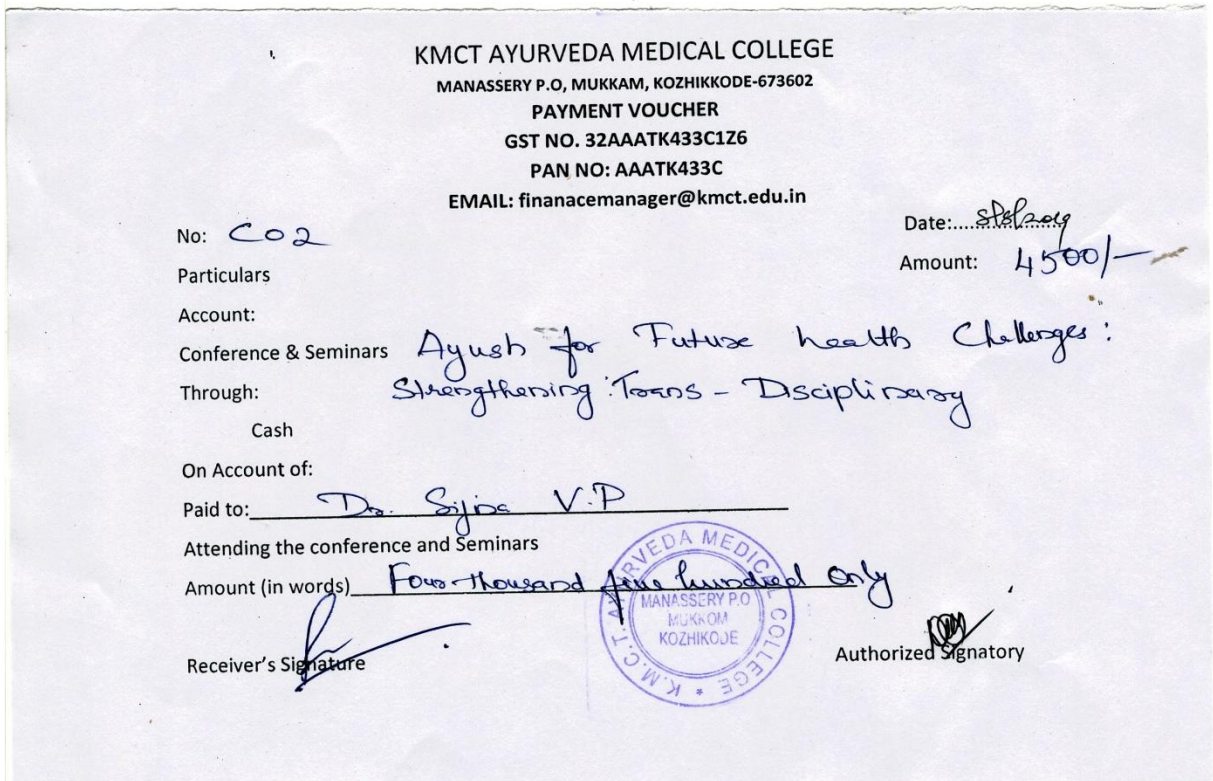 KMCT AYURVEDA MEDICAL COLLEGE
MANASSERY P.O, MUKKAM, KOZHIKKODE-673602
PAYMENT VOUCHER
GST NO. 32AAATK433C1Z6
PAN NO: AAATK433C
EMAIL: finanacemanager@kmct.edu.in
Date:....
No: C02
Amount: 4500/-
Particulars
Account:
Conference & Seminars Ayush for Future health Challenges:
Through: Strengthening Trans - Disciplinary
Cash
On Account of:
Paid to: Dr. Sijina V.P
Attending the conference and Seminars
Amount (in words) Four thousand five hundred Only
Receiver's Signature
Authorized Signatory
K.M.C.T. AYURVEDA MEDICAL COLLEGE
MANASSERY P.O
MUKKOM
KOZHIKODE